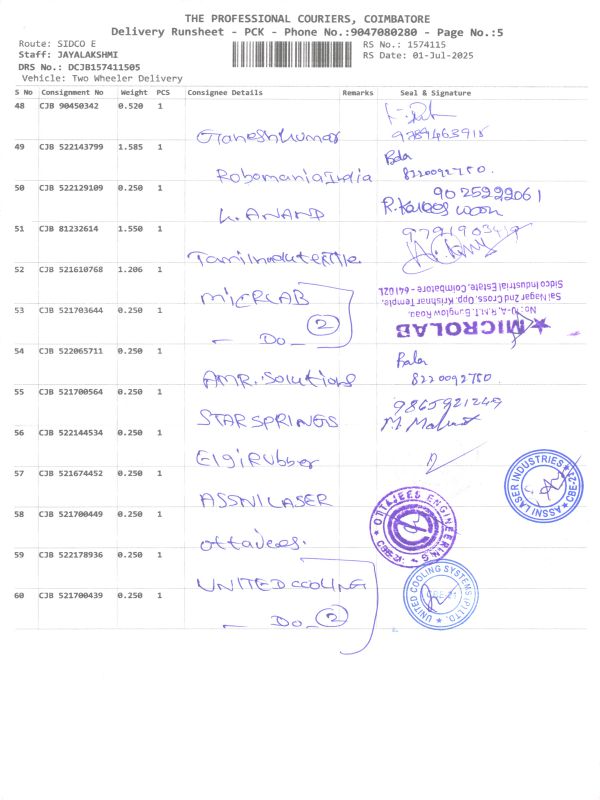 THE PROFESSIONAL COURIERS, COIMBATORE
Delivery Runsheet - PCK - Phone No.:9047080280 - Page No.:5
Route: SIDCO E
RS No.: 1574115
Staff: JAYALAKSHMI
RS Date: 01-Jul-2025
DRS No.: DCJB157411505
Vehicle: Two Wheeler Delivery
S No Consignment No Weight PCS Consignee Details Remarks Seal & Signature
48 CJB 90450342 0.520 1
Ganeshkumar 9789463915
49 CJB 522143799 1.585 1 Bala
RobomaniaIndia 8220092750.
50 CJB 522129109 0.250 1 9025922061
K. ANAND R.
51 CJB 81232614 1.550 1 9791903419
Tamilnadutextile
52 CJB 521610768 1.206 1
MICRLAB
53 CJB 521703644 0.250 1
— Do — 2
★ MICROLAB
No. :U-A, R.M.T. Bunglow Road,
Sai Nagar 2nd Cross, Opp. Krishnar Temple,
Sidco Industrial Estate, Coimbatore - 641 021.
54 CJB 522065711 0.250 1 Bala
AMR. Solutions 8220092750.
55 CJB 521700564 0.250 1 9865921249
STAR SPRINGS M.
56 CJB 522144534 0.250 1
Elgi Rubber
57 CJB 521674452 0.250 1
ASSNI LASER
ASSNI LASER INDUSTRIES ★ CBE-21 ★
58 CJB 521700449 0.250 1
ottaiees.
OTTAIEES ENGINEERING
59 CJB 522178936 0.250 1
UNITED COOLING
UNITED COOLING SYSTEMS (P) LTD. ★ CBE-21
60 CJB 521700439 0.250 1
— Do — 2